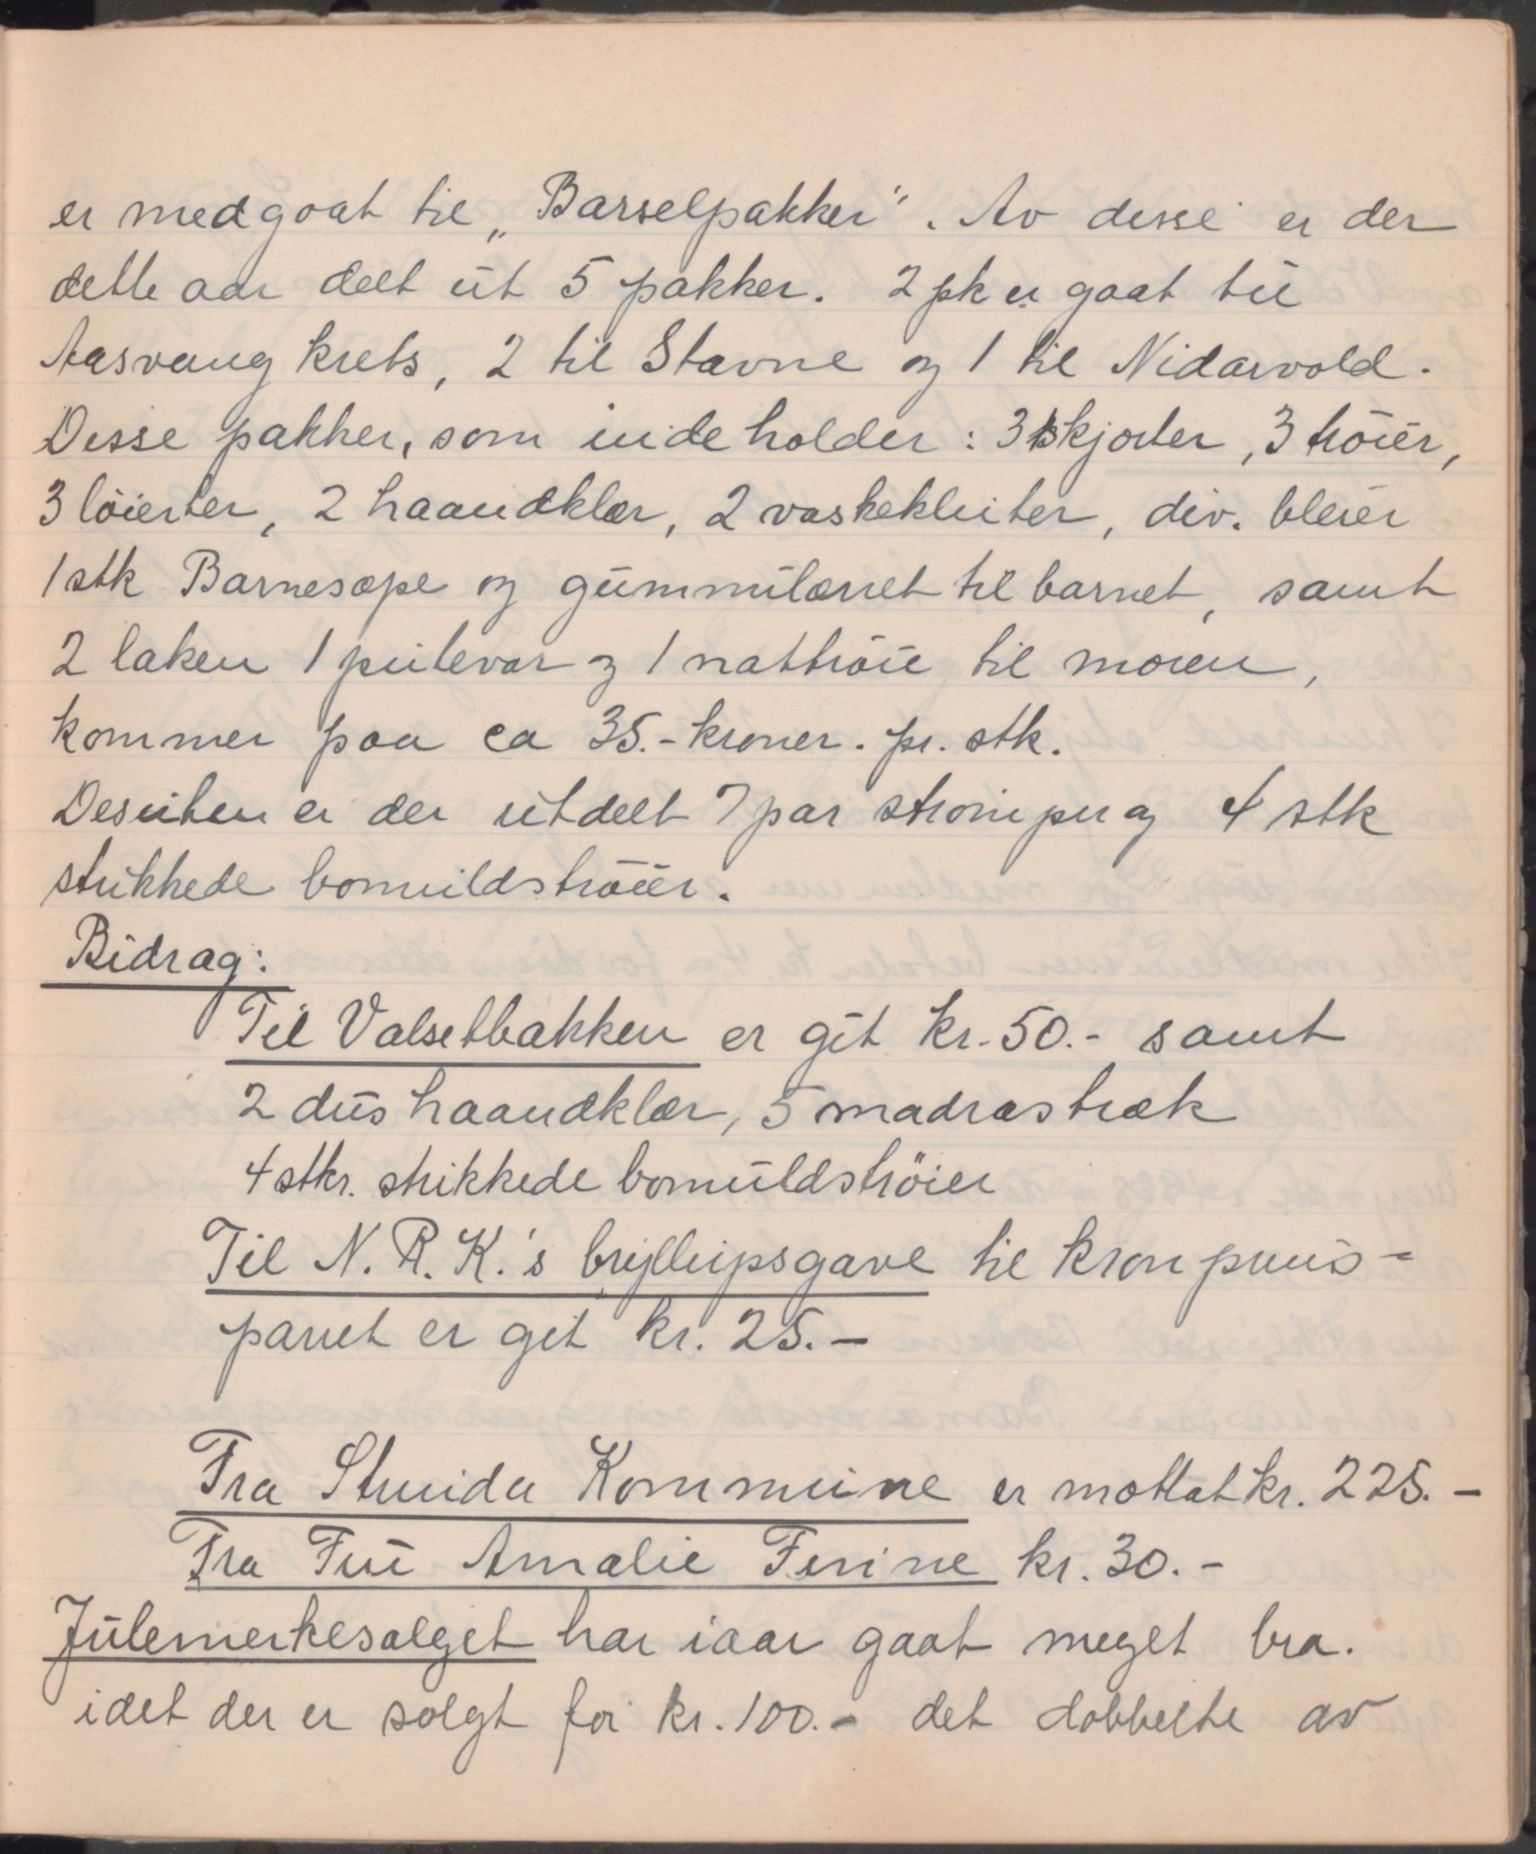 er medgaat til „Barselpakker". Av disse er der
dette aar delt ut 5 pakker. 2 pk er gaat til
Aasvang krets, 2 til Stavne og 1 til Nidarvold.
Disse pakker, som indeholder: 3 skjorter, 3 tröier,
3 löierter, 2 haandklær, 2 vaskekluter, div. bleier
1 stk Barnesæpe og gummilærret til barnet, samt
2 laken 1 putevar og 1 nattröie til moren,
kommer paa ca 35.- kroner. pr. stk.
Desuten er der utdelt 7 par strömper og 4 stk
strikkede bomuldströier.
Bidrag:
Til Valsetbakken er git kr. 50.- samt
2 dus haandklær, 5 madrastræk
4 stkr. strikkede bomuldströier
Til N. R. K.'s bryllupsgave til kronprins-
parret er git kr. 25.-
Fra Strinda Kommune er mottat kr. 225.-
Fra Fru Amalie kr. 30.-
Julemerkesalget har iaar gaat meget bra.
idet der er solgt for kr. 100.- det dobbelte av